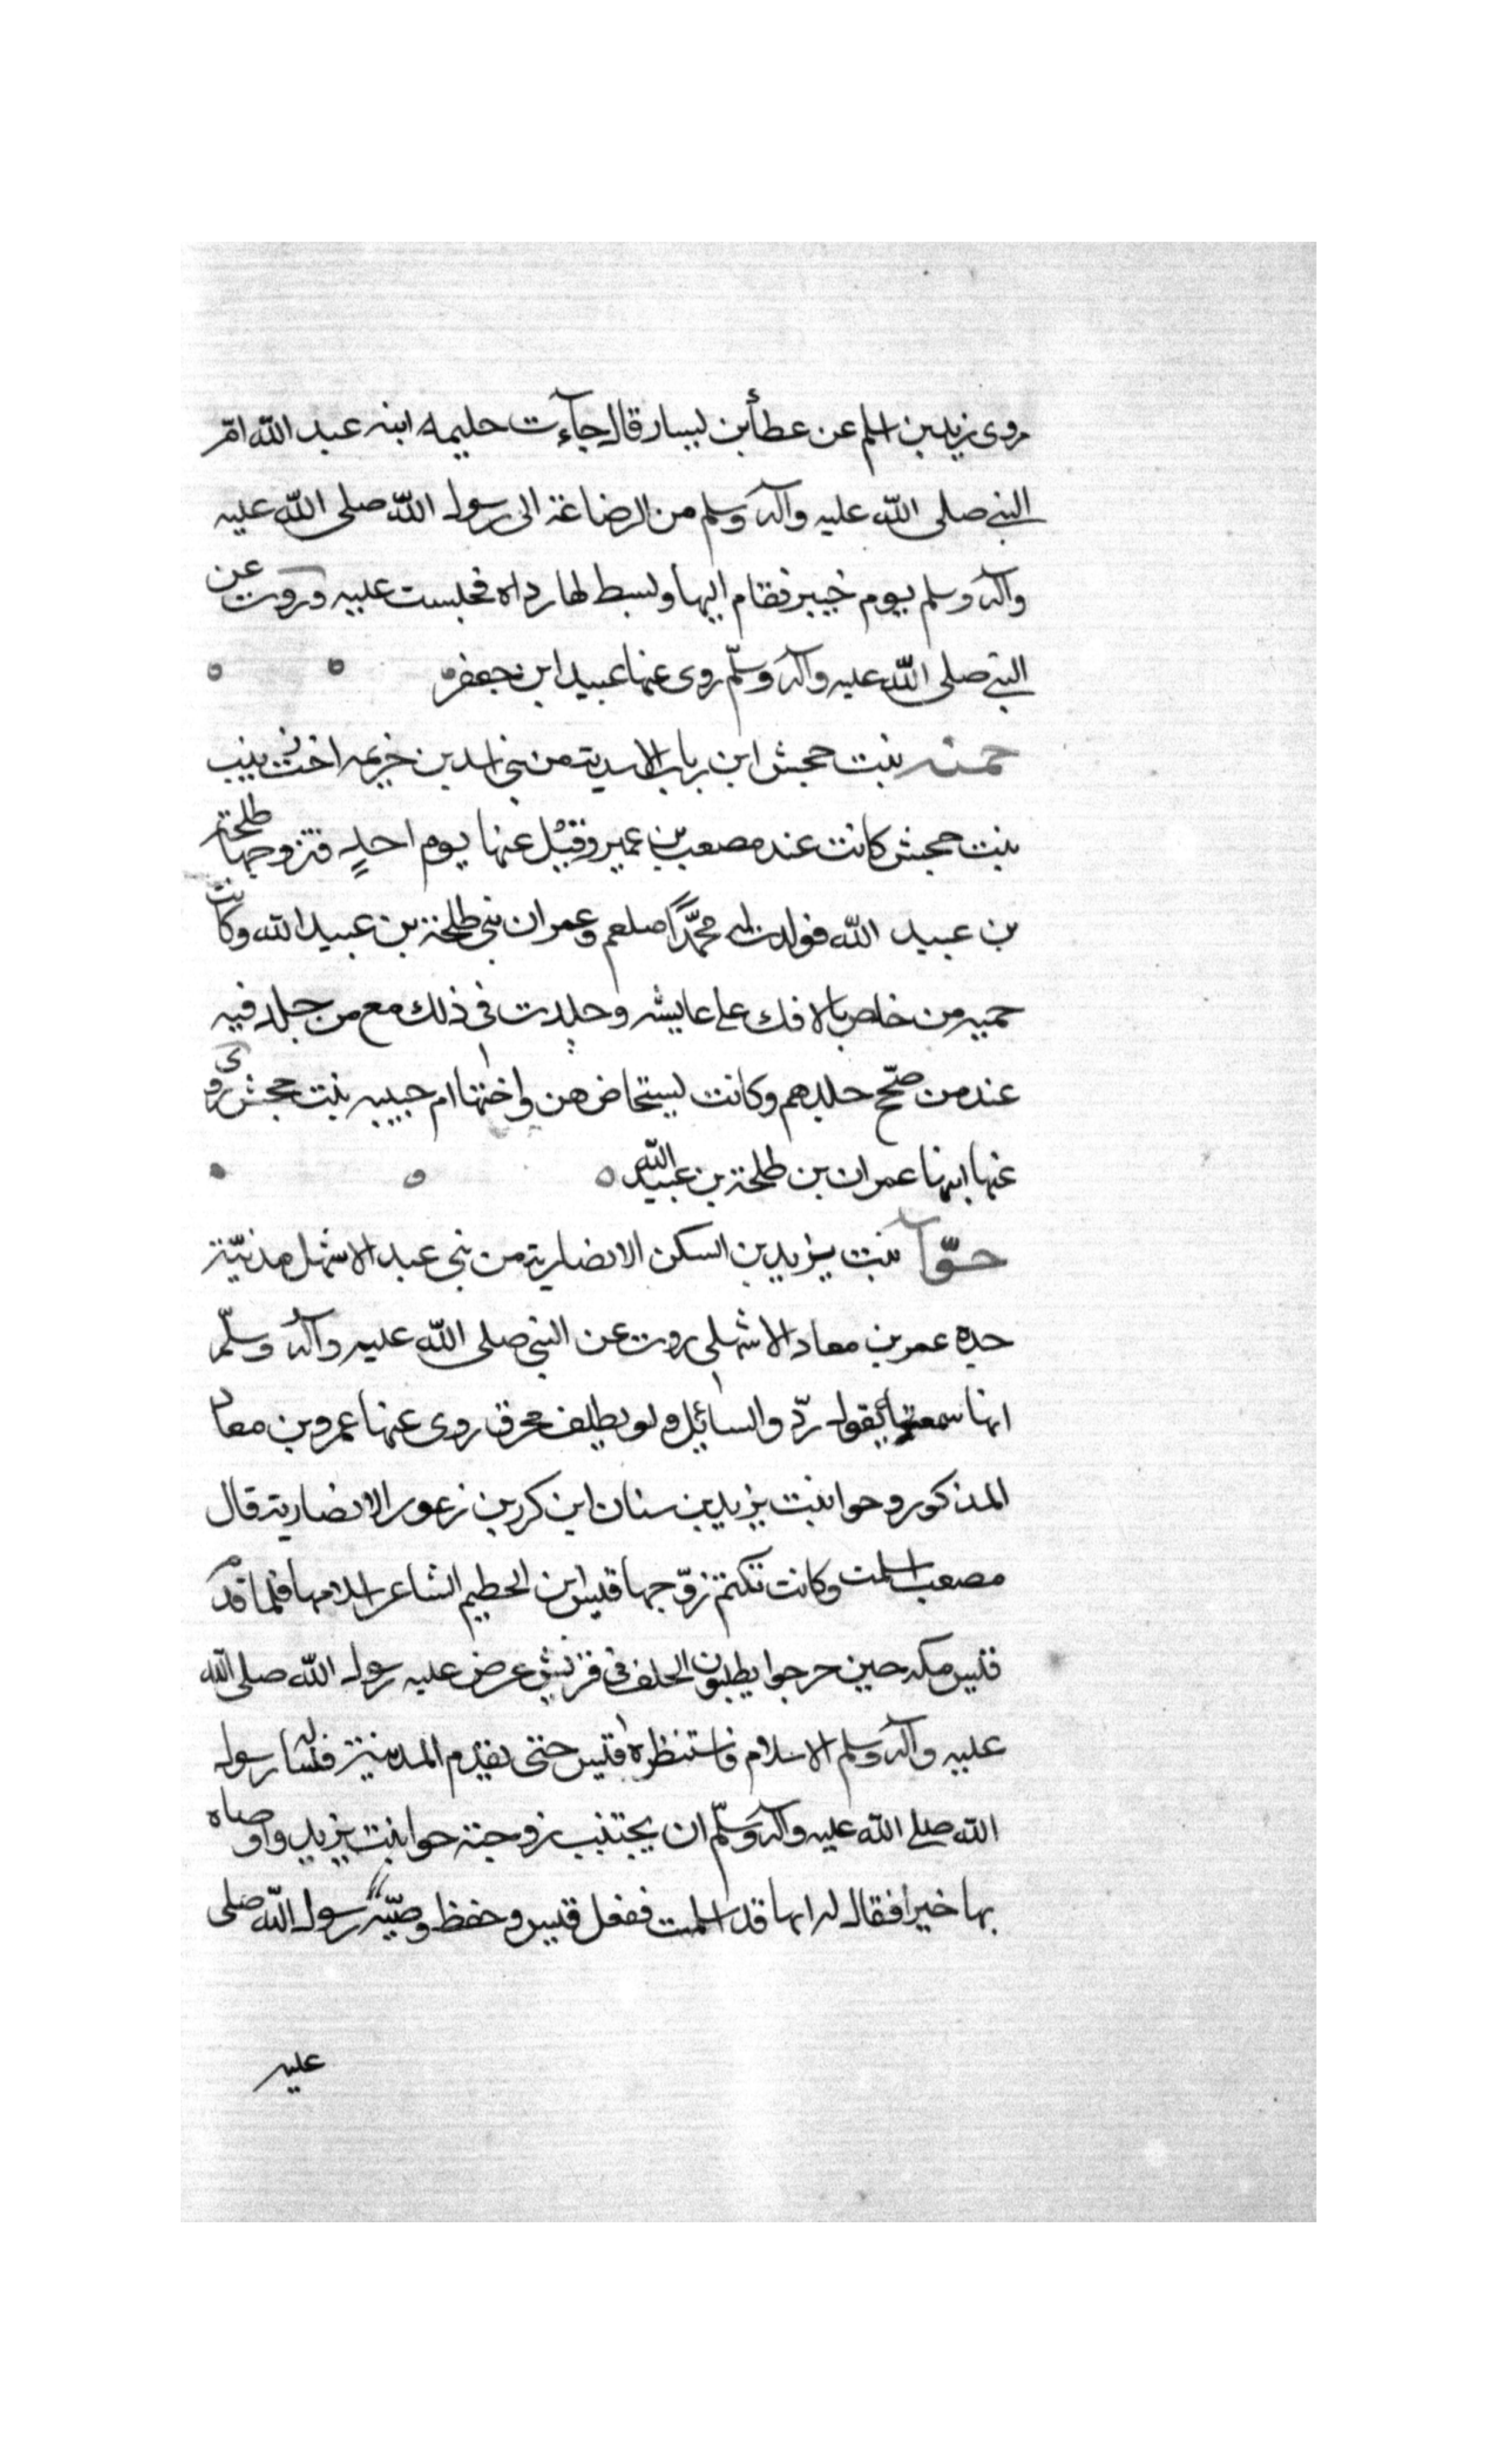 روى زيد بن اسلم عن عطأ بن يسار قال جآءت حليمه ابنه عبد الله امّ
النبي صلى الله عليه وآله وسلم من الرضاعة الى رسول الله صلى الله عليه
وآله وسلم يوم خيبر فقام اليها وبسط لها رداه فجلست عليه وروت عن
النبي صلى الله عليه وآله وسلّم روى عنها عبيد ابن جعفر
حمنه بنت جحش ابن رباب الاسدية من بني اسد بن خزيمه اخت زينب
بنت جحش كانت عند مصعب بن عمير وقتل عنها يوم احدٍ فتزوجها طلحة
بن عبيد الله فولدت له محمّداً صلعم وعمران بني طلحة بن عبيد الله وكانت
حميه من خاص بالافك على عايشه وجلدت في ذلك مع من جلد فيه
عند من صحّ جلدهم وكانت ليستحاض هن واختها ام حبيبه بنت جحش روى
عنها ابنها عمران بن طلحة بن عبيد الله
حوّآ بنت يزيد بن السكن الانصارية من بني عبد الاشهل مدنيّة
جده عمر بن معاد الاشهلي روت عن النبي صلى الله عليه وآله وسلّم
انها سمعته يقول ردّوا السائل ولو بظلف محرق روى عنها عمرو بن معاد
المذكور وحوا بنت يزيد بن سنان ابن كرز بن زعور الانصارية قال
مصعب اسلمت وكانت تكتم زوّجها قيس ابن الحطيم الشاعر اسلامها فلما قدم
قيس مكه حين خرجوا يطلبون الحلف في قريش عرض عليه رسول الله صلى الله
عليه وآله وسلم الاسلام فاستنظره قيس حتى يقدم المدينة فسأله رسول
الله صلى الله عليه وآله وسلّم ان يجتنب زوجته حوا بنت يزيد واوصاه
بها خيرا فقال له انها قد اسلمت ففعل قيس وحفظ وصيّة رسول الله صلى
عليه